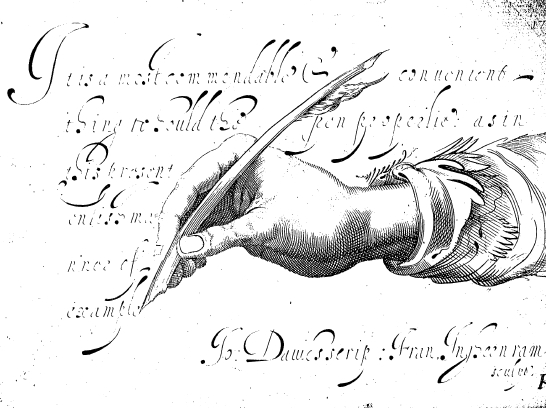 It is a most commendable & convenient
thing to hould the pen properlie: as in
this present
nner of
example
Jo: Davies scrip: Fran
sculpt